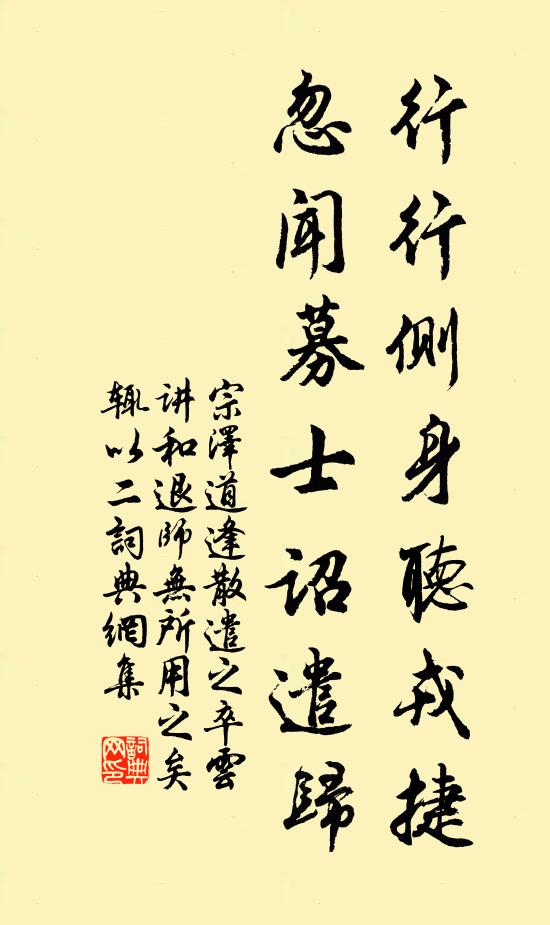 行行側身聽戎捷
忽聞募士詔遣歸
宗澤道逢散遣之卒雲
讲和退師無所用之矣
輒以二詞典網集
詞典網印